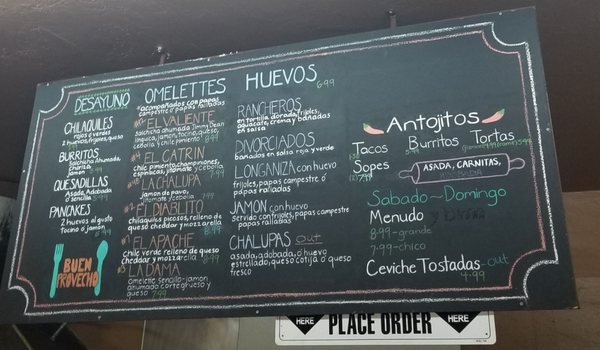 DESAYUNO
CHILAQUILES
rojos o verdes
2 huevos, frijoles, queso
BURRITOS
Salchicha ahumada,
chorizo,
jamon
QUESADILLAS
Asada, Adobada
o sencilla
PANCAKES
2 huevos al gusto
Tocino o jamon
BUEN
PROVECHO
OMELETTES
*acompañados con papas
campestre o papas ralladas
EL VALIENTE
Salchicha ahumada Jimmy Dean
linguica, jamon, tocino, queso,
jitomate y cebolla
EL CATRIN
chile pimiento, champiñones,
espinacas, jitomate y cebolla
LA CHALUPA
jamon de pavo,
jitomate y cebolla
EL DIABLITO
chilaquiles picosos, relleno de
queso cheddar y mozzarella
EL APACHE
chile verde relleno de queso
cheddar y mozzarella
LA DAMA
omelette sencillo-jamon
ahumado cortegrueso y
queso 7.99
HUEVOS 6.99
RANCHEROS
en tortilla dorada, frijoles,
aguacate, crema y bañadas
en salsa
DIVORCIADOS
bañados en salsa roja y verde
LONGANIZA con huevo
frijoles, papas campestre o
papas ralladas
JAMON con huevo
servido con frijoles, papas campestre
o papas ralladas
CHALUPAS out
asada, adobada, o huevo
estrellado, queso cotija o queso
fresco
Antojitos
Tacos Burritos Tortas
Sopes
ASADA, CARNITAS,
Sabado-Domingo
Menudo
8.99-grande
7.99-chico
Ceviche Tostadas-out
4.99
HERE PLACE ORDER HERE